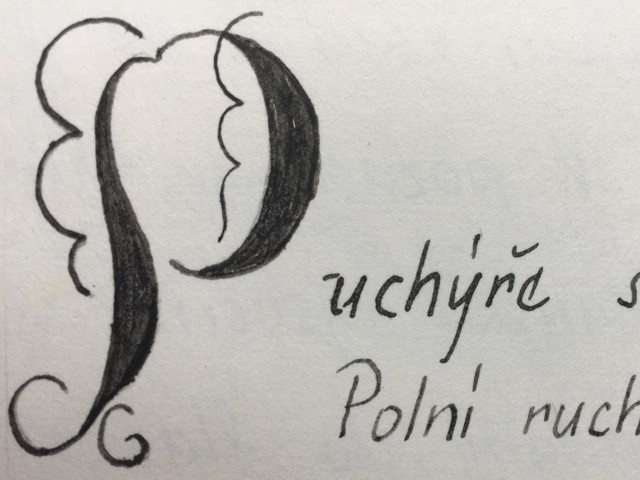 Puchýře s
Polní ruch